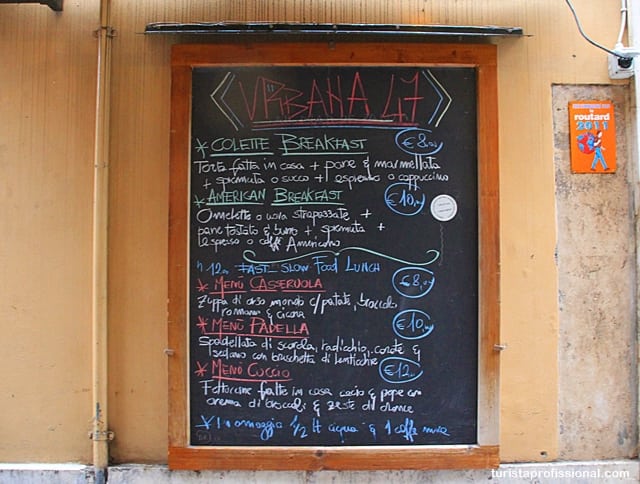 URBANA 47
* COLETTE BREAKFAST €8,00
Torta fatta in casa + pane & marmellata
+ spremuta o succo + espresso o cappuccino
* AMERICAN BREAKFAST €10,00
Omelette o uova strapazzate +
pane tostato & burro + spremuta +
espresso o caffè Americano
h 12,00 FAST_SLOW FOOD LUNCH
* MENÙ CASSERUOLA €8,00
Zuppa di orzo mondo c/patate, broccolo
romano & cicoria
* MENÙ PADELLA €10,00
Spadellata di scarola, radicchio, carote &
sedano con bruschetta di lenticchie
* MENÙ COCCIO €12,00
Fettuccine fatte in casa cacio & pepe con
crema di broccoli & zeste di arance
* In omaggio 1/2 lt acqua & 1 caffè
le
routard
2011
turistaprofissional.com